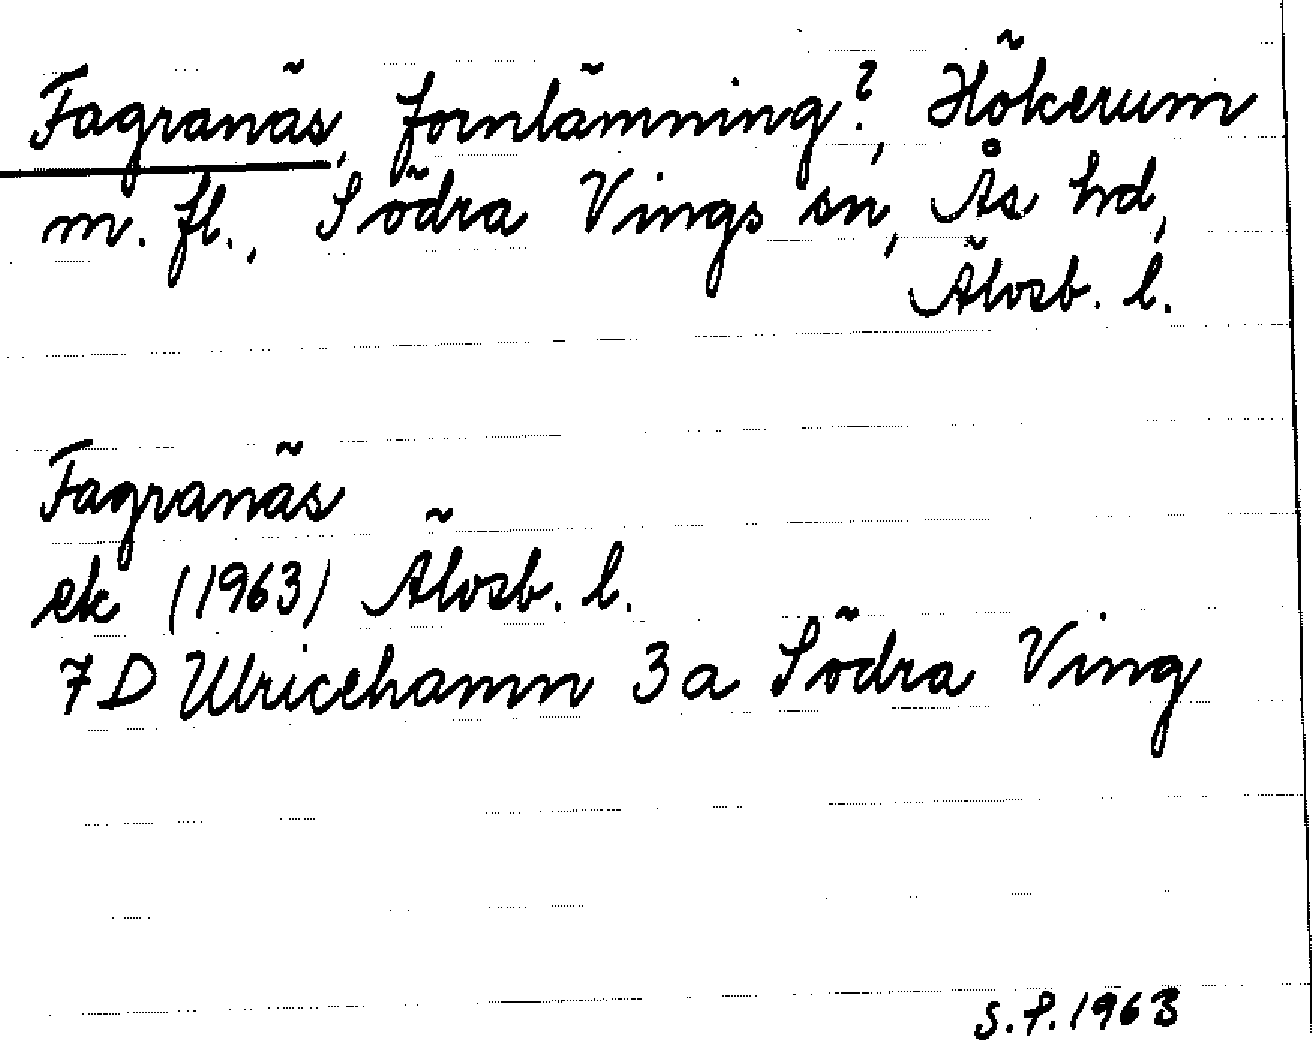 Fagranäs, fornlämning?, Hökerum
m. fl., Södra Vings sn, Ås hd,
Älvsb. l.
Fagranäs
ek (1963) Älvsb. l.
7D Ulricehamn 3a Södra Ving
S.P. 1963